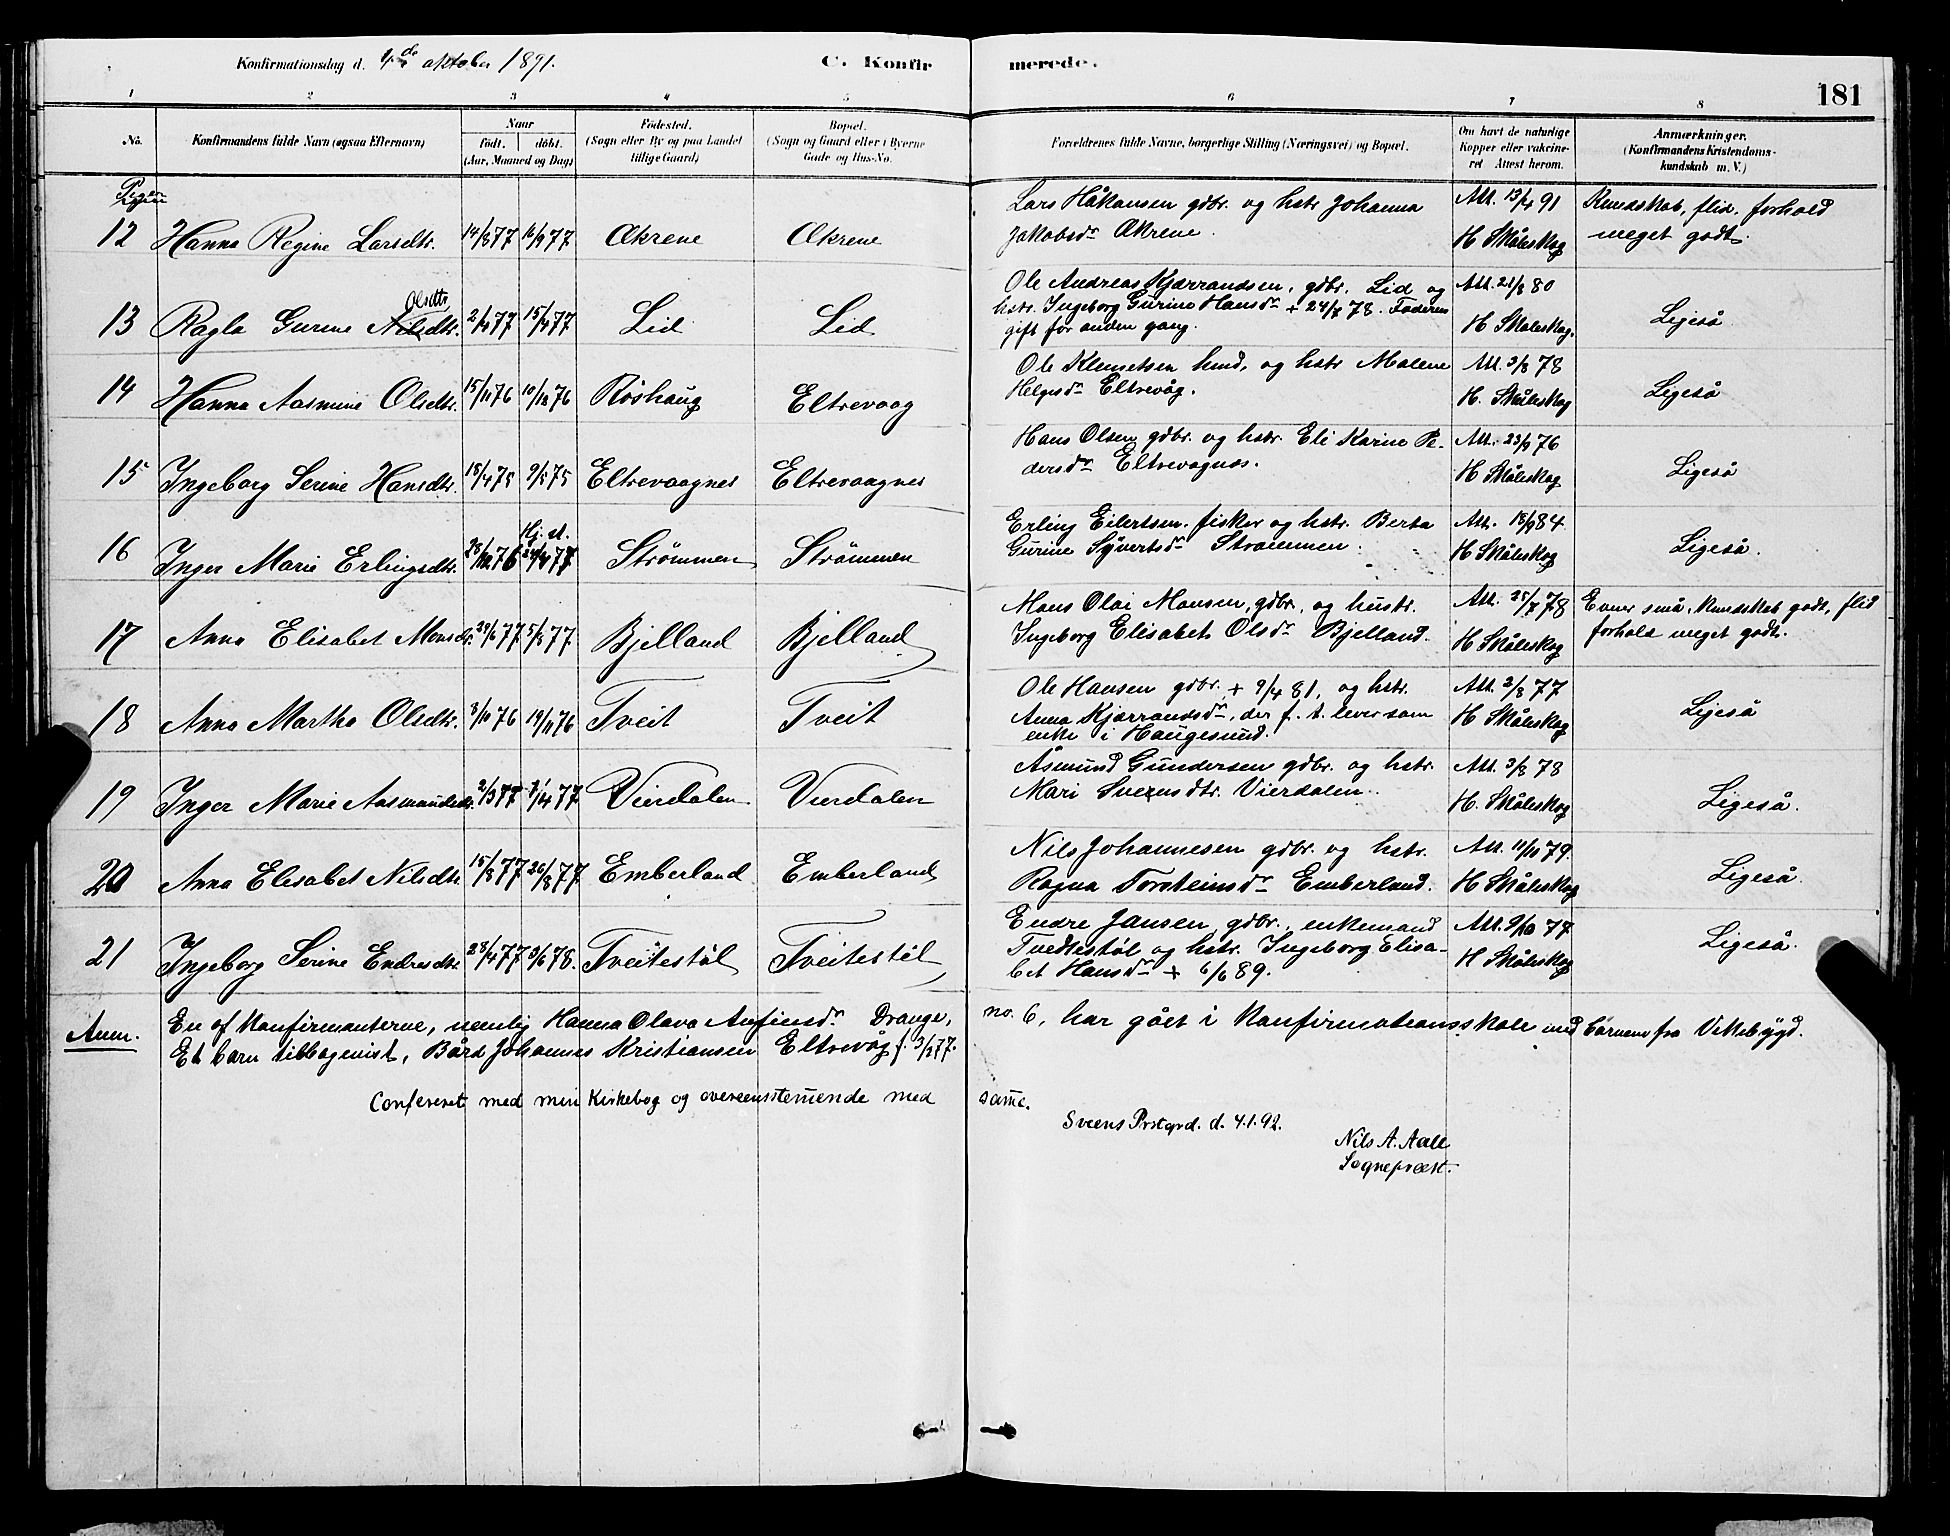 Konfirmationsdag d. 4de oktober 1891.
C. Konfirmerede.
181
1 2 3 4 5 6 7 8
No. Konfirmandens fulde Navn (ogsaa Efternavn)
Naar
født. døbt.
(Aar, Maaned og Dag)
Fødested.
(Sogn eller By og paa Landet
tillige Gaard)
Bopæl.
(Sogn og Gaard eller i Byerne
Gade og Hus-No.
Forældrenes fulde Navne, borgerlige Stilling (Næringsvei) og Bopæl.
Om havt de naturlige
Kopper eller vakcine-
ret Attest herom.
Anmærkninger.
(Konfirmandens Kristendoms-
kundskab m. V.)
Piger
12 Hanna Regine Larsdtr. 14/8 77 16/9 77 Økrene Økrene
Lars Håkansen gdbr. og hstr Johanna
Jakobsdr Økrene.
Att. 13/4 91
H Skåleskog
Kundskab, flid, forhold
meget godt.
13 Ragla Gurine Nilsdtr. Olsdtr 2/4 77 15/4 77 Lid Lid
Ole Andreas Kjærrandsen, gdbr. Lid og
hstr. Ingeborg Gurine Hansdr + 24/8 78. Faderen
gift for anden gang.
Att. 21/8 80
H Skåleskog.
Ligeså
14 Hanna Aasmine Olsdtr. 15/11 76 10/12 76 Røshaug Eltrevaag
Ole Klemetsen hmd, og hstr Malene
Helgesdr Eltrevåg.
Att. 3/8 78
H. Skåleskog
Ligeså
15 Ingeborg Serine Hansdtr. 18/4 75 9/5 75 Eltrevaagnes Eltrevaagnes
Hans Olsen gdbr. og hstr. Eli Karine Pe-
dersdr Eltrevagnæs.
Att. 23/9 76
H Skåleskog
Ligeså
16 Inger Marie Erlingsdtr. 28/12 76 Hj. d. 24/4 77 Strømmen Strømmen
Erling Eilertsen. fisker og hstr. Berta
Gurine Syvertsdr Strømmen.
Att. 18/9 84.
H Skåleskog
Ligeså.
17 Anna Elisabet Monsdr. 29/6 77 5/8 77 Bjelland Bjelland
Mons Olai Monsen, gdbr., og hustr.
Ingeborg Elisabet Olsdr Bjelland.
Att. 25/7 78
H Skåleskog
Evner små, kundskab godt, flid
forhold meget godt.
18 Anna Martha Olsdtr. 8/10 76 19/11 76 Tveit Tveit
Ole Hansen gdbr. + 9/4 81, og hstr.
Anna Kjærrandsdr, der f. t. lever som
enke i Haugesund.
Att. 2/8 77
H Skåleskog
Ligeså
19 Inger Marie Aasmundsdr. 2/3 77 8/4 77 Vierdalen Vierdalen
Åsmund Gundersen gdbr. og hstr.
Mari Sverresdtr. Vierdalen.
Att. 3/8 78
H. Skåleskog
Ligeså.
20 Anna Elisabet Nilsdtr. 15/8 77 26/8 77 Emberland Emberland
Nils Johannesen gdbr. og hstr.
Ragna Torsteinsdr Emberland.
Att. 11/10 79.
H Skåleskog
Ligeså.
21 Ingeborg Serine Endresdtr. 28/4 77 3/6 78. Tveitestøl Tveitestøl
Endre Jansen, gdbr., enkemand
Tvedtestøl og hstr. Ingeborg Elisa-
bet Hansdr + 6/6 89.
Att. 9/10 77
H Skåleskog
Ligeså.
Anm. En af Konfirmanterne, nemlig Hanna Olava Anfinsdr Drange, no. 6, har gået i Konfirmationsskole med børnene fra Vikebygd.
Et barn tilbagevist, Bård Johannes Kristiansen Eltrevåg f. 3/2 77.
Confereret med min Kirkebog og overeensstemmende med samme.
Sveens Prstgrd. d. 4.1.92.
Nils A. Aall
Sognepræst.